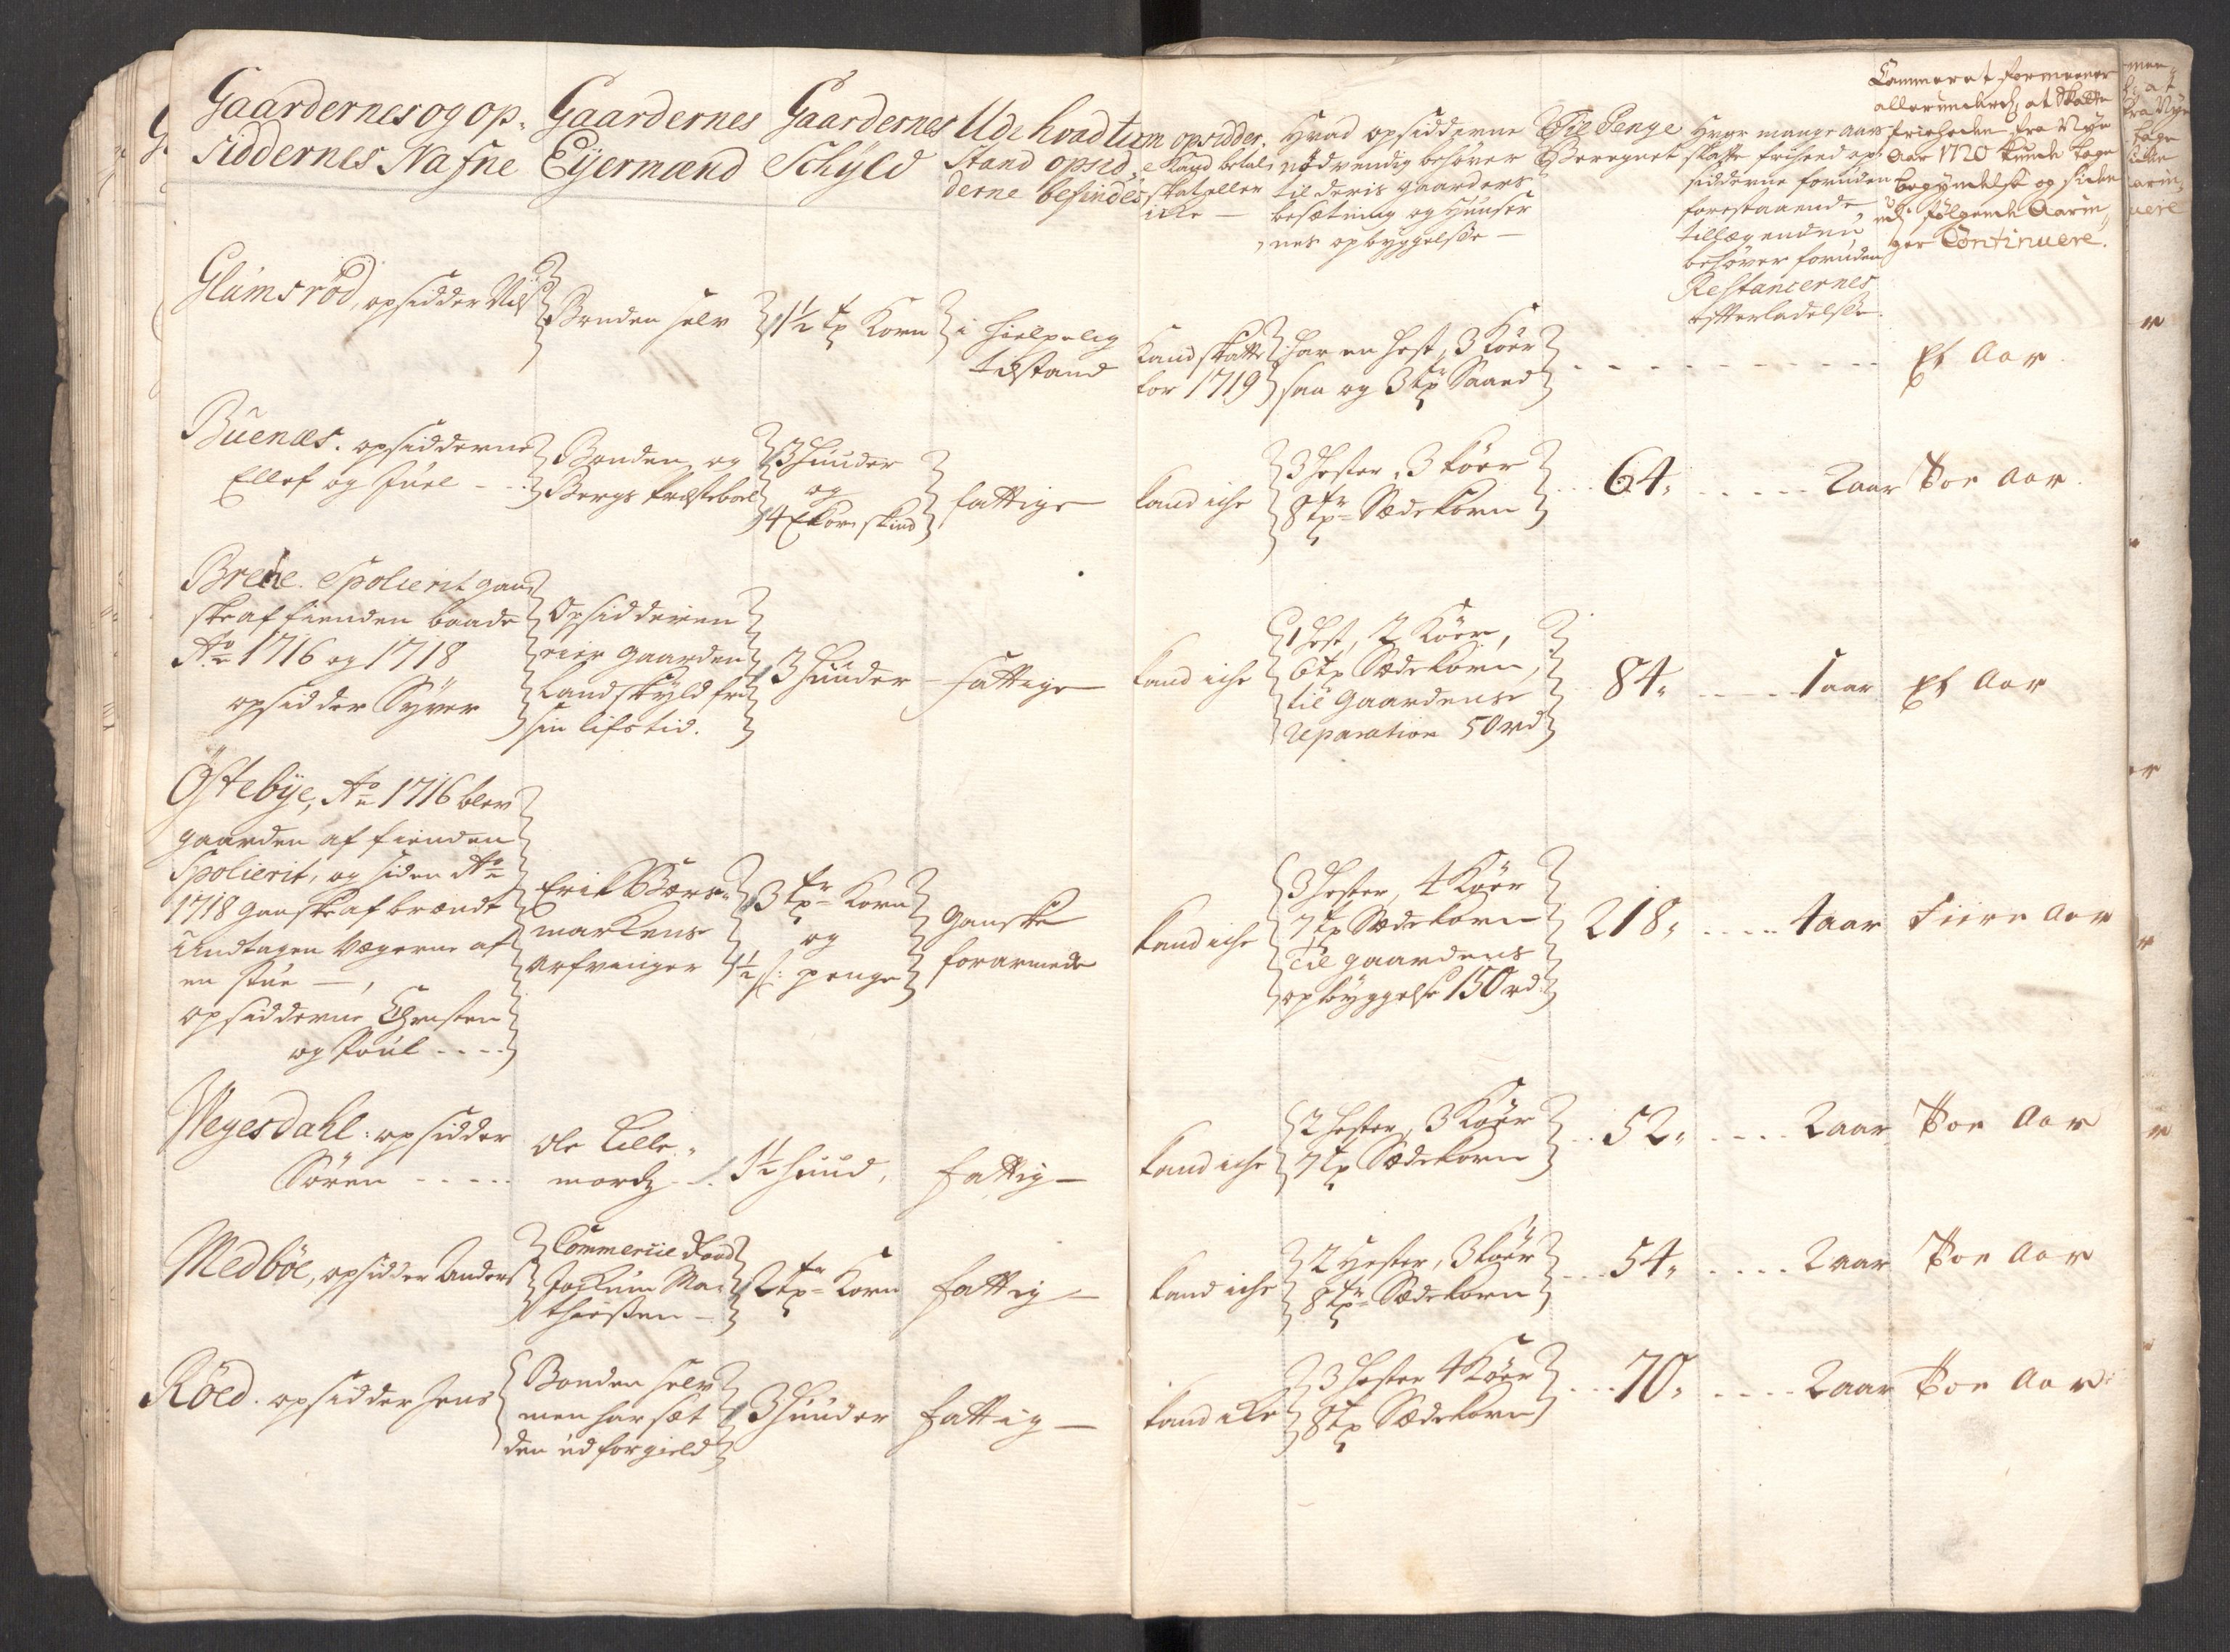 Gaardernes og op-
siddernes Nafne
Gaardernes
Eyermænd
Gaardernes
Schyld
Udi hvad
Stand opsid-
derne befindes
om opsidder-
e Kand betale
skat eller
icke —
Hvad opsidderne
nödvendig behöver
til deris gaarders
besætning og Huuser
nes opbyggelse —
Til Penge
Beregnet
Hvor mange aars
skatte frihed op-
sidderne foruden
forestaaende
tillægender
behöver foruden
Restancernes
efterladelse.
Cammeret formeener
allerunderd: at Skatte
friheden fra Nye
Aar 1720 kunde tage
begyndelse og siden
udj følgende Aarin-
ger Continuere.
Glumsröd, opsidder Niels
Bonden selv
1½ tp Korn
i hielpelig
tilstand
Kand skatte
for 1719
har en hest, 3 Köer
saa og 3 tp Saand
Et Aar.
Buenæs. opsidderne
Ellef og Juel - -
Bonden og
Bergs Præstebol
3 Huuder
og
4 Ekorn skind
fattige
kand iche
3 Hester, 3 Köer
8 tpr Sædekorn
64„
2 aar
Toe Aar.
Brekke. Spolierit gan-
ske af fienden baade
Ao 1716 og 1718
opsidder Syver
Opsidderen
eier gaarden
Landskyld fri
sin lifs tid.
3 Huuder
fattige
kand iche
1 Hest, 2 Köer,
6 tp Sædekorn,
til Gaardens
Reparation 50 rd
84„
1 aar
Et Aar
Östebye, Ao 1716 blev
gaarden af fienden
Spolierit, og siden Ao
1718 ganske afbrændt
undtagen Vægerne af
en stue —,
opsidderne Christen
og Poul - - - -
Erik Børs-
markens
Arfvinger
3 tpr Korn
og
1½ ß: penge
Ganske
forarmede
kand iche
3 Hester, 4 Köer
7 tp Sædekorn
Til gaardens
opbyggelse 150 rd
218„
4 aar
Fiire Aar
Wegesdahl: opsidder
Sören - - - - -
Ole Lille-
mordz - .
1½ Huud,
fattig —
kand iche
2 Hester, 3 Köer
7 tp Sædekorn
52„
2 aar
Toe Aar
Medböe, opsidder Anders
Commercie Raad
Jochum Ma-
thiesen —
2 tpr Korn
fattig —
kand iche
2 Hester, 3 Köer
8 tpr Sædekorn
54„
2 aar
Toe Aar
Röed. opsidder Jens
Bonden selv
men har sat
den ud for gield
3 Huuder
fattig —
kand icke
3 Hester 4 Köer
8 tp Sædekorn
70„
2 aar
Toe Aar